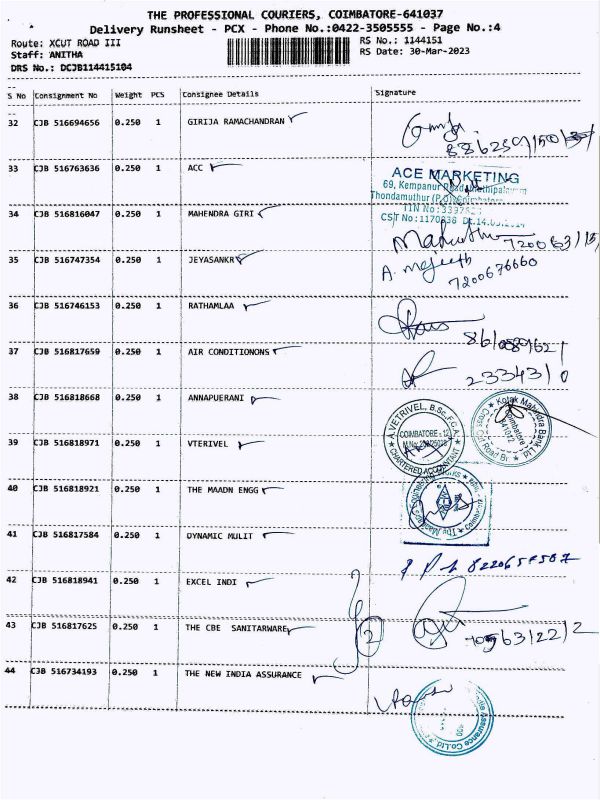 THE PROFESSIONAL COURIERS, COIMBATORE-641037
Delivery Runsheet - PCX - Phone No.:0422-3505555 - Page No.:4
Route: XCUT ROAD III
RS No.: 1144151
Staff: ANITHA
RS Date: 30-Mar-2023
DRS No.: DCJB114415104
S No Consignment No Weight PCS Consignee Details Signature
32 CJB 516694656 0.250 1 GIRIJA RAMACHANDRAN
33 CJB 516763636 0.250 1 ACC
ACE MARKETING
69, Kempanur Road
Thondamuthur (P.O)
34 CJB 516816047 0.250 1 MAHENDRA GIRI
CST No:1170836
35 CJB 516747354 0.250 1 JEYASANKR
A. majeeth
7200676660
36 CJB 516746153 0.250 1 RATHAMLAA
37 CJB 516817659 0.250 1 AIR CONDITIONONS
233431 0
38 CJB 516818668 0.250 1 ANNAPUERANI
A.VETRIVEL, B.Sc.,F.C.A.
COIMBATORE - 12
CHARTERED ACCOUNTANT
Kotak Mahindra Bank Ltd
Cross Cut Road Br.
Coimbatore
641012
39 CJB 516818971 0.250 1 VTERIVEL
40 CJB 516818921 0.250 1 THE MAADN ENGG
41 CJB 516817584 0.250 1 DYNAMIC MULIT
42 CJB 516818941 0.250 1 EXCEL INDI
43 CJB 516817625 0.250 1 THE CBE SANITARWARE
44 CJB 516734193 0.250 1 THE NEW INDIA ASSURANCE
Assurance Co.Ltd.